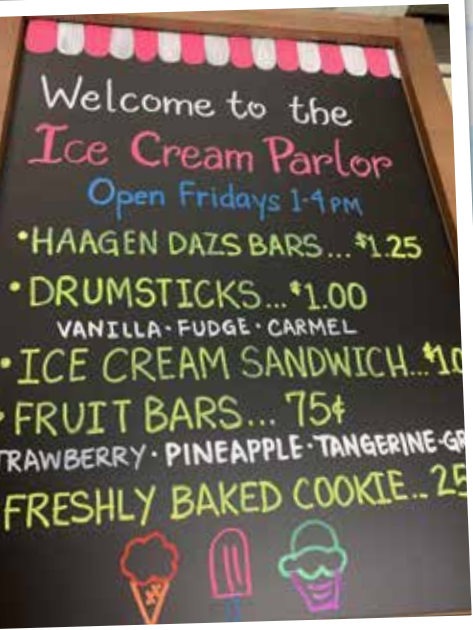 Welcome to the
Ice Cream Parlor
Open Fridays 1-4 PM
•HAAGEN DAZS BARS...$1.25
•DRUMSTICKS...$1.00
VANILLA·FUDGE·CARMEL
•ICE CREAM SANDWICH...
•FRUIT BARS... 75¢
PINEAPPLE·TANGERINE
FRESHLY BAKED COOKIE..